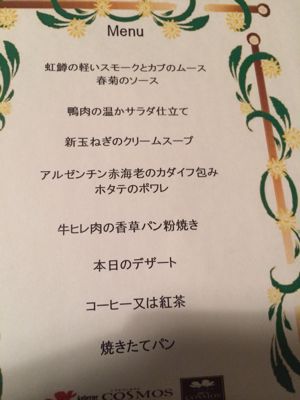 Menu
虹鱒の軽いスモークとカブのムース
春菊のソース
鴨肉の温かサラダ仕立て
新玉ねぎのクリームスープ
アルゼンチン赤海老のカダイフ包み
ホタテのポワレ
牛ヒレ肉の香草パン粉焼き
本日のデザート
コーヒー又は紅茶
焼きたてパン
COSMOS